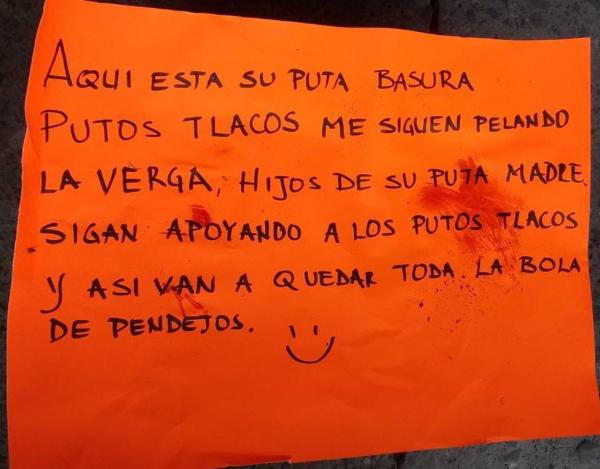 AQUI ESTA SU PUTA BASURA
PUTOS TLACOS ME SIGUEN PELANDO
LA VERGA, HIJOS DE SU PUTA MADRE
SIGAN APOYANDO A LOS PUTOS TLACOS
Y ASI VAN A QUEDAR TODA LA BOLA
DE PENDEJOS.